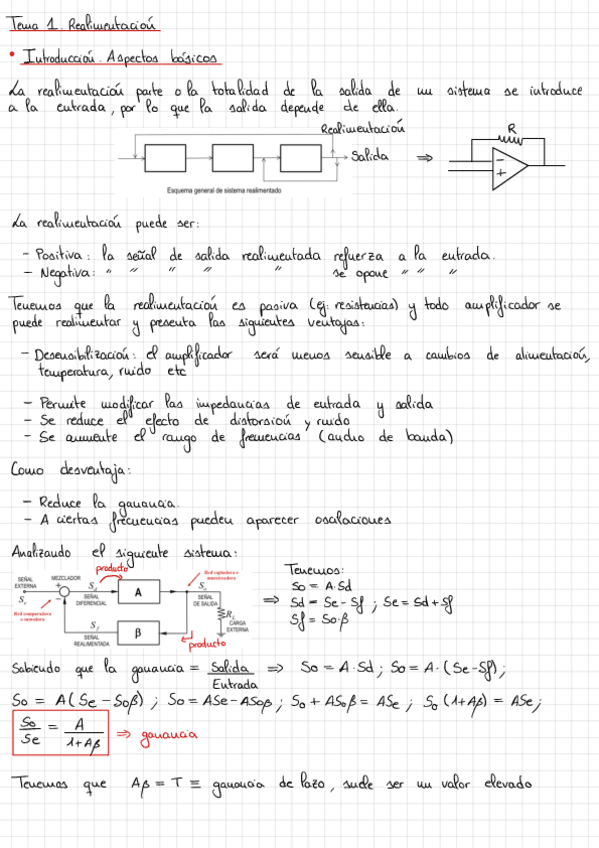 Tema 1. Realimentación
• Introducción. Aspectos básicos
La realimentación parte o la totalidad de la salida de un sistema se introduce
a la entrada, por lo que la salida depende de ella.
Realimentación
Salida ⇒
R
−
+
Esquema general de sistema realimentado
La realimentación puede ser:
− Positiva: la señal de salida realimentada refuerza a la entrada.
− Negativa: " " " " " se opone " " "
Tenemos que la realimentación es pasiva (ej: resistencias) y todo amplificador se
puede realimentar y presenta las siguientes ventajas:
− Desensibilización: el amplificador será menos sensible a cambios de alimentación,
temperatura, ruido etc
− Permite modificar las impedancias de entrada y salida
− Se reduce el efecto de distorsión y ruido
− Se aumente el rango de frecuencias (ancho de banda)
Como desventaja:
− Reduce la ganancia.
− A ciertas frecuencias pueden aparecer oscilaciones
Analizando el siguiente sistema:
producto
SEÑAL EXTERNA
MEZCLADOR
SEÑAL DIFERENCIAL
A
SEÑAL DE SALIDA
CARGA EXTERNA
SEÑAL REALIMENTADA
β
producto
Tenemos:
So = A·Sd
⇒ Sd = Se − Sf ; Se = Sd + Sf
Sf = So·β
Sabiendo que la ganancia = Salida / Entrada ⇒ So = A·Sd ; So = A·(Se−Sf);
So = A(Se − Soβ) ; So = ASe − ASoβ ; So + ASoβ = ASe ; So (1+Aβ) = ASe;
So / Se = A / 1+Aβ ⇒ ganancia
Tenemos que Aβ = T ≡ ganancia de lazo, suele ser un valor elevado